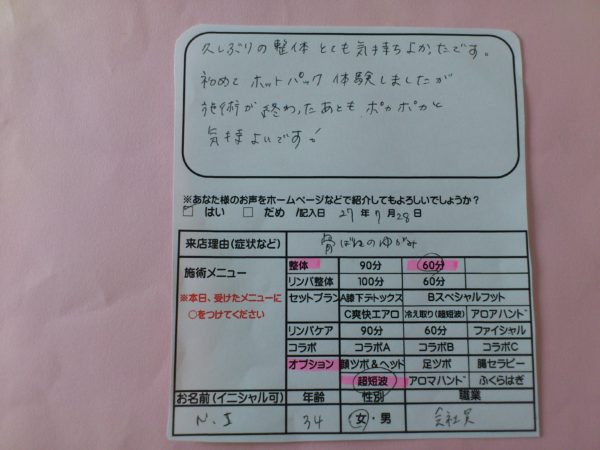 久しぶりの整体とても気持ちよかったです。
初めてホットパック体験しましたが
施術が終わったあともポカポカと
気持よいです!
※あなた様のお声をホームページなどで紹介してもよろしいでしょうか?
はい だめ /記入日 27年7月28日
来店理由(症状など) 骨ばんのゆがみ
施術メニュー
※本日、受けたメニューに
○をつけてください
整体 90分 60分
リンパ整体 100分 60分
セットプラン A膝下デトックス Bスペシャルフット
C爽快エアロ 冷え取り(超短波) アロアハンド
リンパケア 90分 60分 ファイシャル
コラボ コラボA コラボB コラボC
オプション 顔ツボ&ヘッド 足ツボ 腸セラピー
超短波 アロマハンド ふくらはぎ
お名前(イニシャル可) 年齢 性別 職業
N.I 34 女・男 会社員